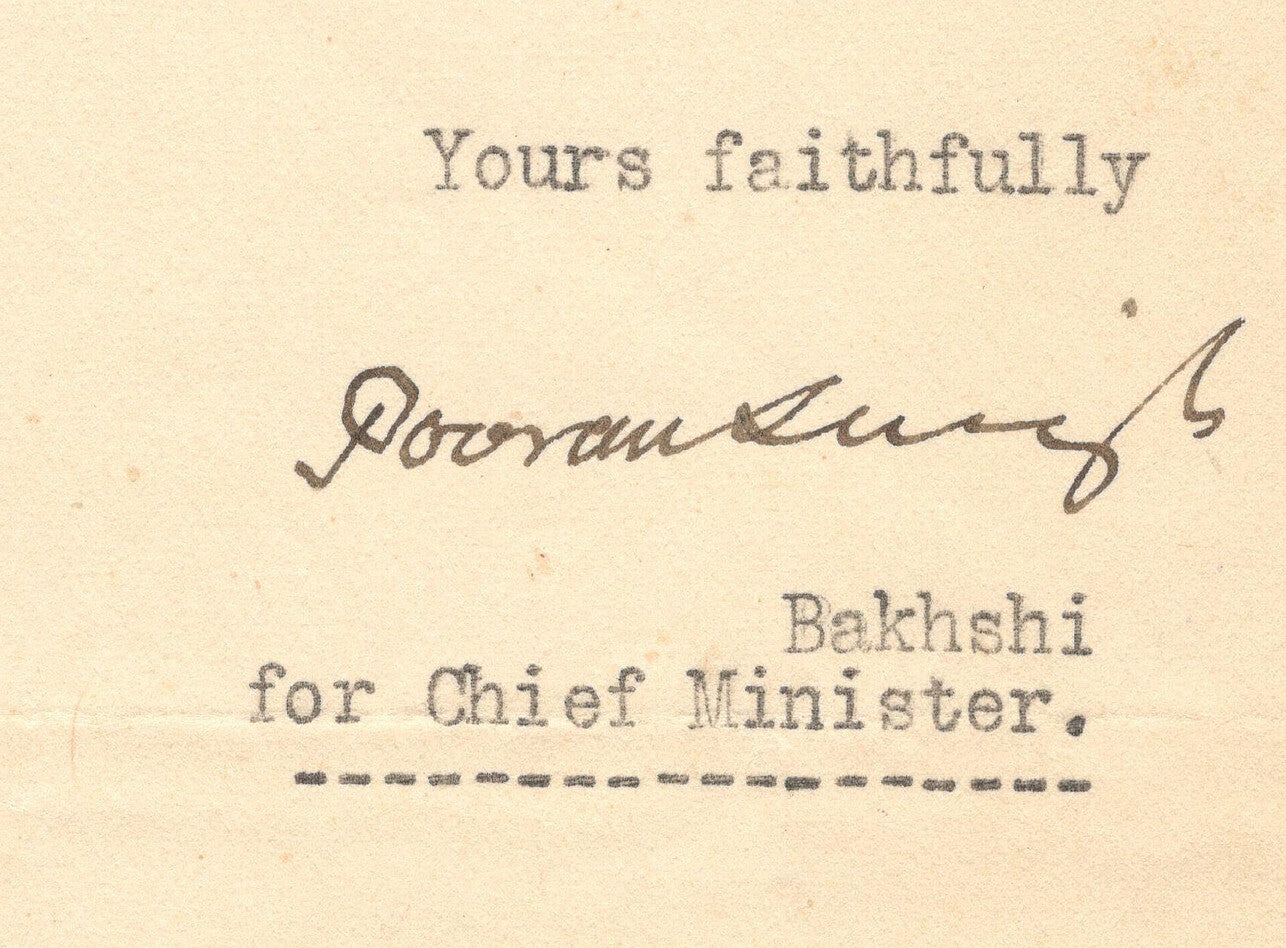 Yours faithfully
Pooran Singh
Bakhshi
for Chief Minister.
-----------------